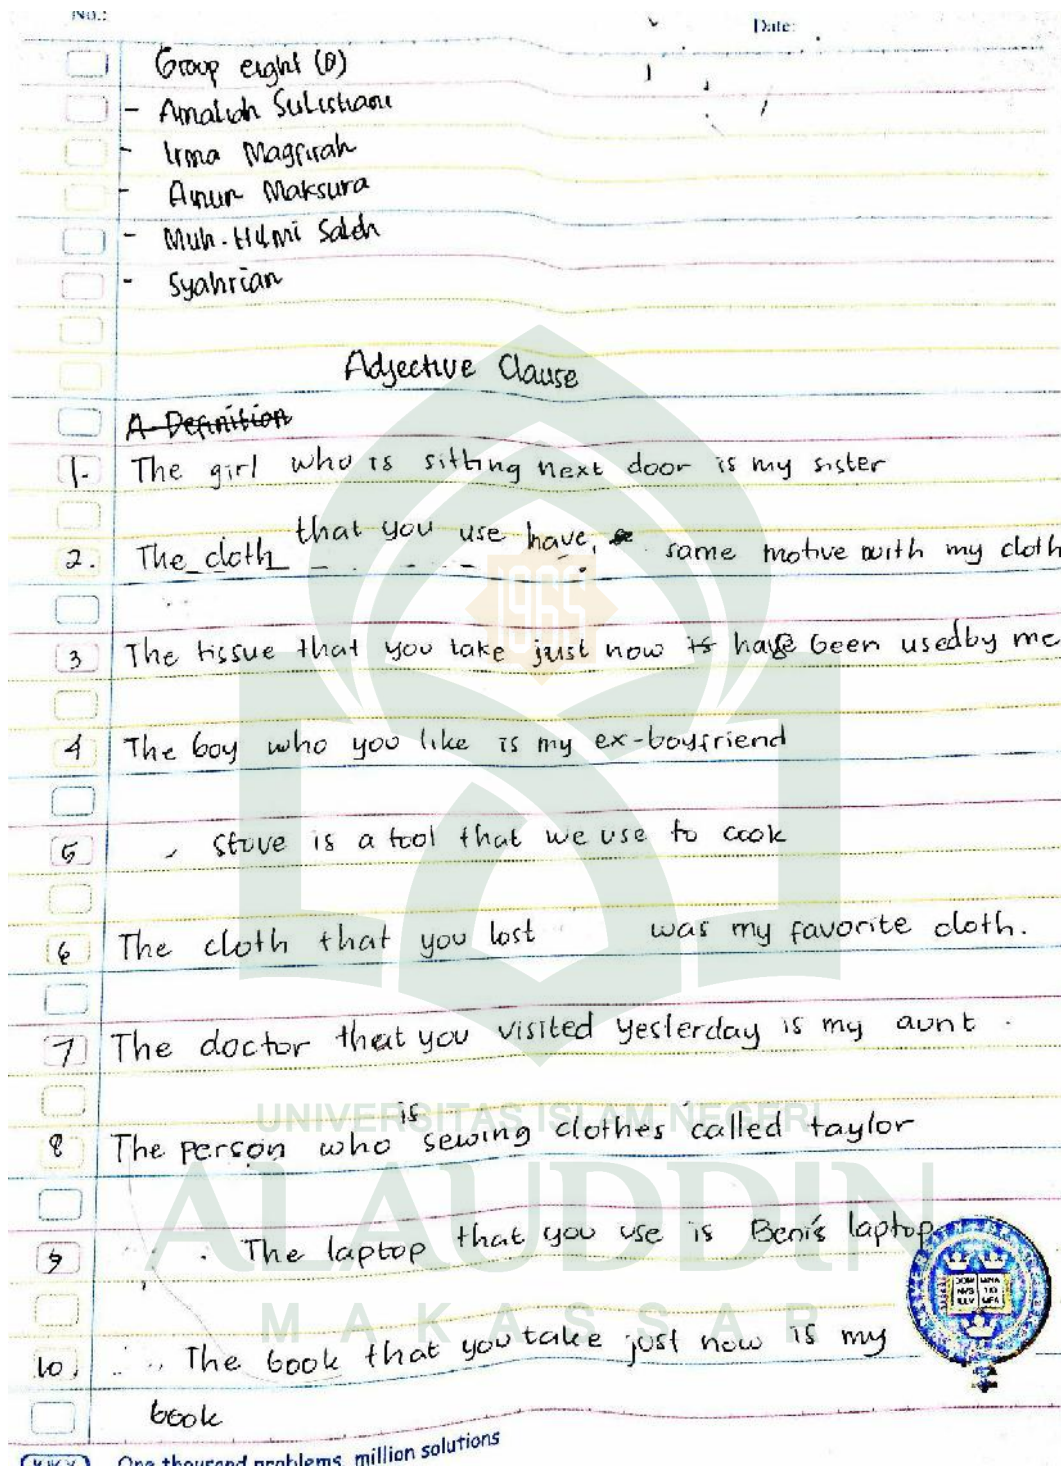 No.:
Date:
Group eight (8)
- Amaliah Sulistiani
- Irma Magfirah
- Ainun Maksura
- Muh. Hilmi Saleh
- Syahrian
Adjective Clause
A. Definition
1. The girl who is sitting next door is my sister
2. The cloth that you use have, same motive with my cloth
3 The tissue that you take just now is have been used by me
4 The boy who you like is my ex-boyfriend
5 Stove is a tool that we use to cook
6 The cloth that you lost was my favorite cloth.
7 The doctor that you visited yesterday is my aunt.
8 The person who is sewing clothes called taylor
9 The laptop that you use is Beni's laptop
10. The book that you take just now is my
book
One thousand problems, million solutions
1965
UNIVERSITAS ISLAM NEGERI
ALAUDDIN
MAKASSAR